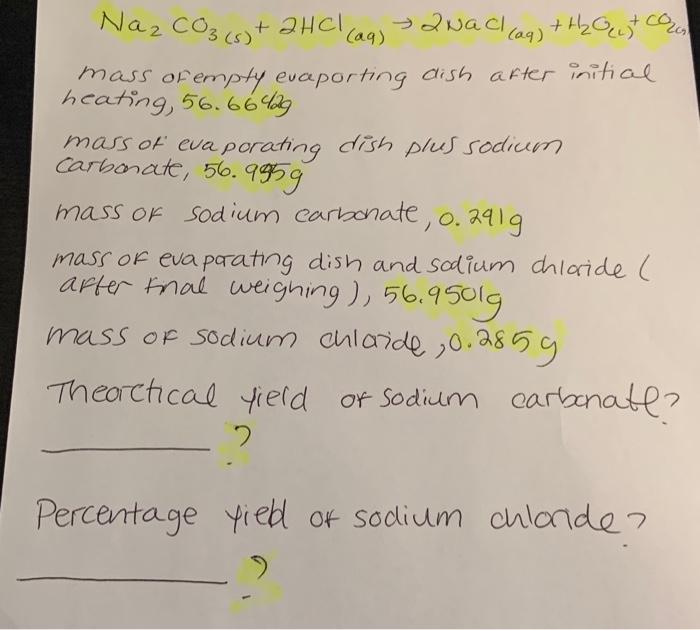 Na2 CO3 (s) + 2HCl (aq) → 2NaCl (aq) + H2O(l) + CO2(g)
mass of empty evaporting dish after initial
heating, 56.6642g
mass of evaporating dish plus sodium
carbonate, 56.955g
mass of sodium carbonate, 0.291g
mass of evaporating dish and sodium chloride (
after final weighing), 56.9501g
mass of sodium chloride, 0.285g
Theoretical yield of sodium carbonate?
?
Percentage yield of sodium chloride?
?